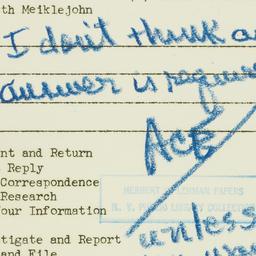 th Meiklejohn
I don't think a
answer is require
ACE
nt and Return
Reply
Correspondence
Research
our Information
HERBERT LEHMAN PAPERS
N. Y. PUBLIC LIBRARY COLLECTION
unless
tigate and Report
and File